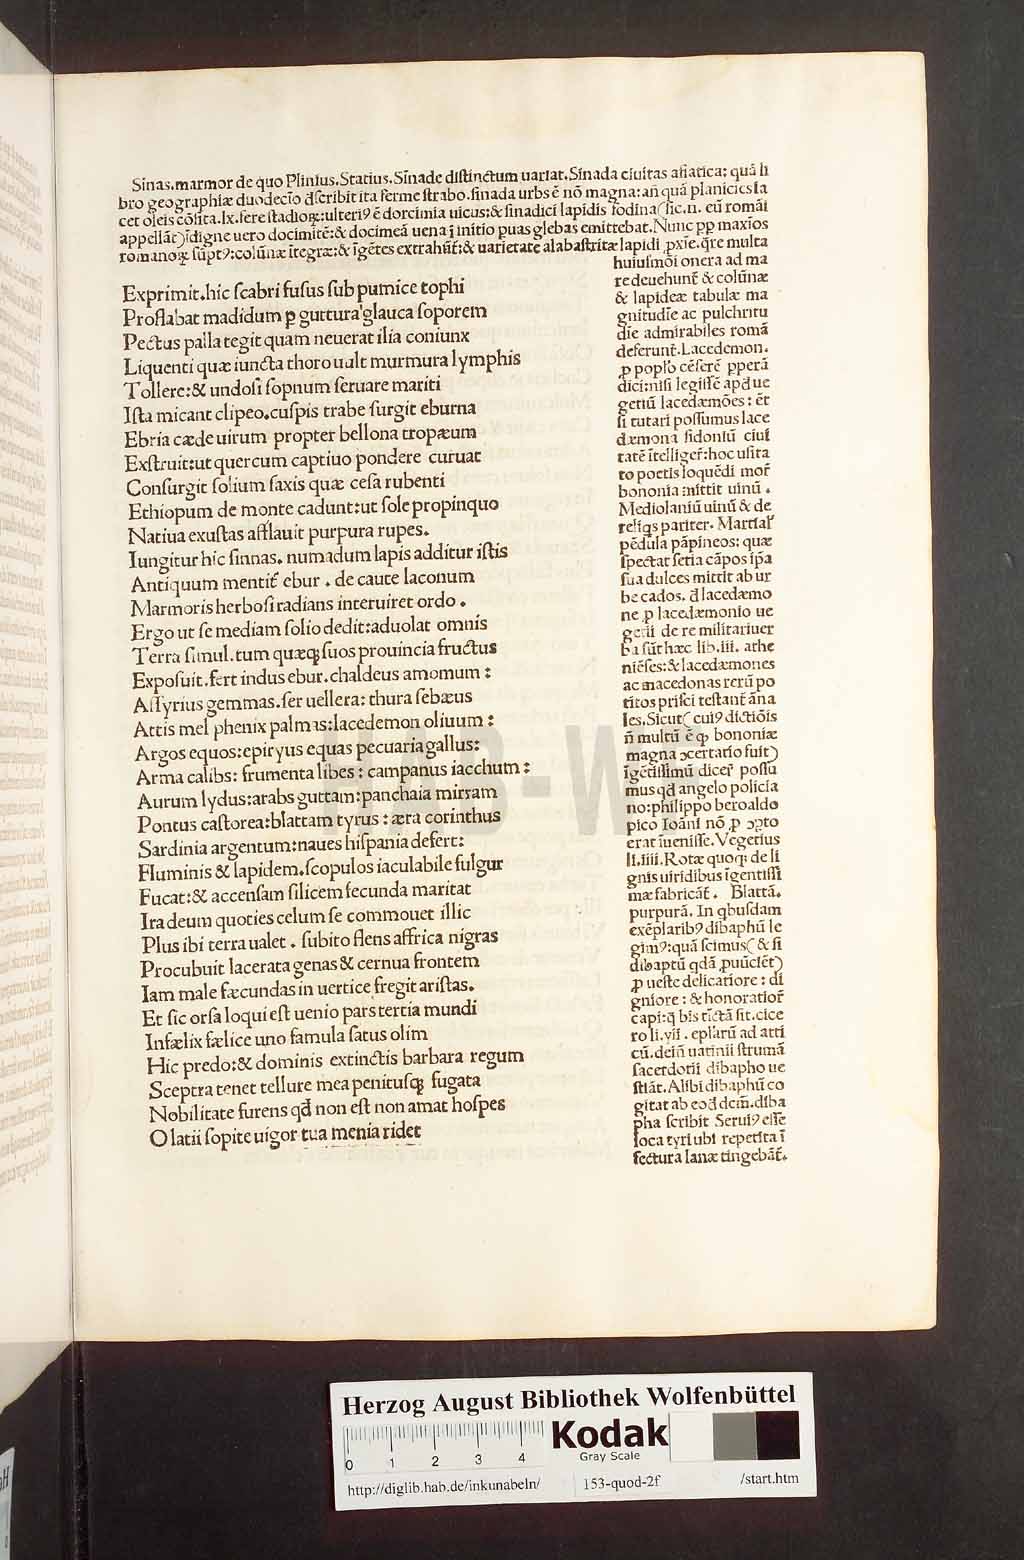 Sinas.marmor de quo Plinius.Statius.Sinade distinctum uariat.Sinada ciuitas asiatica: quā li
bro geographiæ duodecīo dscribit ita ferme strabo.sinada urbs ē nō magna: añ quā planicies ia
cet oleis cōsita.lx.fere stadioꝝ:ulteriꝰ ē dorcimia uicus:& sinadici lapidis fodina(sic.n. eū romāi
appellāt)īdigne uero docimitē:& docimeā uena ī initio puas glebas emittebat.Nunc ꝓp maxīos
romanoꝝ sūptꝰ:colūnæ ītegræ:& īgētes extrahūt̄:& uarietate alabastritæ lapidi ꝓxīe.q̄re multa
huiusmōi onera ad ma
re deuehunt̄ & colūnæ
& lapideæ tabulæ ma
gnitudīe ac pulchritu
dīe admirabiles romā
deferunt̄.Lacedemon.
ꝓ poplo cēserē ꝓperā
dici:nisi legissē apđ ue
getiū lacedæmōes: ēt
si tutari possumus lace
dæmona sidoniū ciui
tatē ītelliger̄:hoc usita
to poetis loquēdi mor̄
bononia mittit uinū.
Mediolaniū uinū & de
reliq̄s pariter. Martiał
pēdula pāpineos: quæ
spectat setia cāpos ip̄a
sua dulces mittit ab ur
be cados. đ lacedæmo
ne ꝓ lacedæmonio ue
getii de re militari uer
ba sūt hæc lib.iii. athe
niēses:& lacedæmones
ac macedonas rerū po
titos prisci testant̄ āna
les.Sicut(cuiꝰ dictiōis
ñ multū ē q̨ bononiæ
magna ↄcertatio fuit)
īgētissimū dicer̄ possu
mus qđ angelo policia
no:philippo beroaldo
pico Ioāni nō ꝓ ↄꝑto
erat īuenisse.Vegetius
li.iiii.Rotæ quoq; de li
gnis uiridibus īgentissi
mæ fabricāt̄. Blattā.
purpurā. In q̄busdam
exēplaribꝰ dibaphū le
gimꝰ:quā scimus(& si
dibaptū qdā ꝓuūciēt)
ꝓ ueste delicatiore: di
gniore: & honoratior̄
capi:q̄ bis tīctā sit.cice
ro li.vii. eplarū ad atti
cū.deiñ uatinii strumā
sacerdotii dibapho ue
stiāt.Alibi dibaphū co
gitat ab eođ dcm̄.diba
pha scribit Seruiꝰ esse
loca tyri ubi repetita ī
fectura lanæ tingebāt̄.
Exprimit.hic scabri fusus sub pumice tophi
Proflabat madidum ꝑ guttura glauca soporem
Pectus palla tegit quam neuerat ilia coniunx
Liquenti quæ iuncta thoro uult murmura lymphis
Tollere:& undosi sopnum seruare mariti
Ista micant clipeo.cuspis trabe surgit eburna
Ebria cæde uirum propter bellona tropæum
Exstruit:ut quercum captiuo pondere curuat
Consurgit solium saxis quæ cesa rubenti
Ethiopum de monte cadunt:ut sole propinquo
Natiua exustas afflauit purpura rupes.
Iungitur hic sinnas. numadum lapis additur istis
Antiquum mentit̄ ebur. de caute laconum
Marmoris herbosi radians interuiret ordo.
Ergo ut se mediam solio dedit:aduolat omnis
Terra simul.tum quæq; suos prouincia fructus
Exposuit.fert indus ebur.chaldeus amomum:
Assyrius gemmas.ser uellera: thura sebæus
Attis mel phenix palmas:lacedemon oliuum:
Argos equos:epiryus equas pecuaria gallus:
Arma calibs: frumenta libes: campanus iacchum:
Aurum lydus:arabs guttam:panchaia mirram
Pontus castorea:blattam tyrus: æra corinthus
Sardinia argentum:naues hispania defert:
Fluminis & lapidem.scopulos iaculabile fulgur
Fucat:& accensam silicem fecunda maritat
Ira deum quoties celum se commouet illic
Plus ibi terra ualet. subito flens affrica nigras
Procubuit lacerata genas & cernua frontem
Iam male fæcundas in uertice fregit aristas.
Et sic orsa loqui est uenio pars tertia mundi
Infælix fælice uno famula satus olim
Hic predo:& dominis extinctis barbara regum
Sceptra tenet tellure mea penitusq; fugata
Nobilitate furens qđ non est non amat hospes
O latii sopite uigor tua menia ridet
HAB-W
Herzog August Bibliothek Wolfenbüttel
0 1 2 3 4
Kodak
Gray Scale
http://diglib.hab.de/inkunabeln/ 153-quod-2f /start.htm